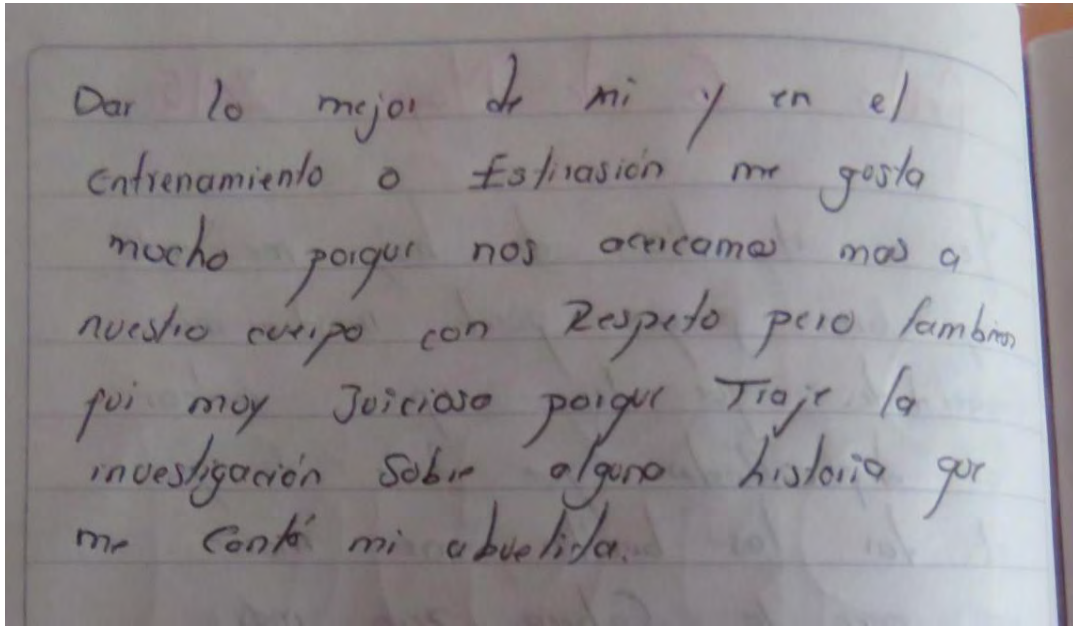 Dar lo mejor de mi y en el
entrenamiento o Estirasión me gusta
mucho porque nos acercamos mas a
nuestro cuerpo con Respeto pero tambien
fui muy Juicioso porque Traje la
investigación sobre alguna historia que
me contó mi abuelita.